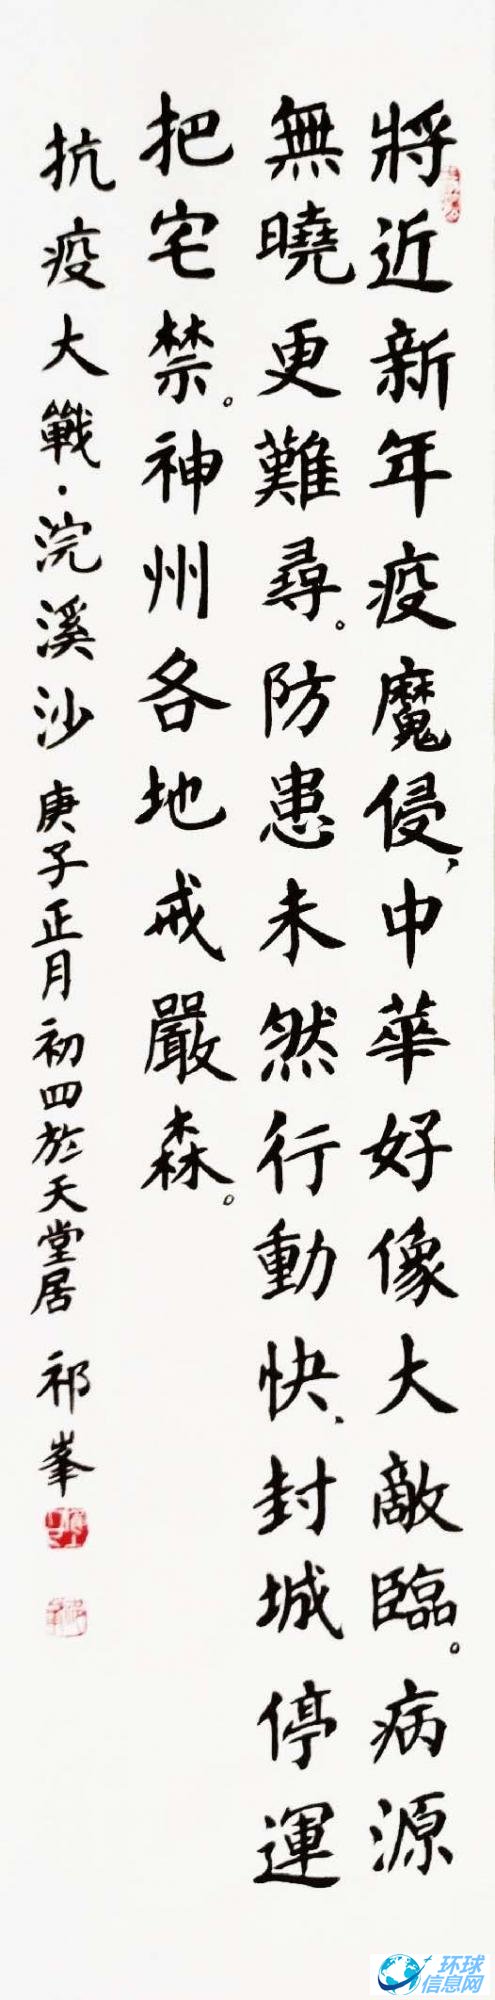 將近新年疫魔侵、中華好像大敵臨。病源
無曉更難尋。防患未然行動快、封城停運
把宅禁。神州各地戒嚴森。
抗疫大戰·浣溪沙 庚子正月初四於天堂居 祁峯
环球
信息网